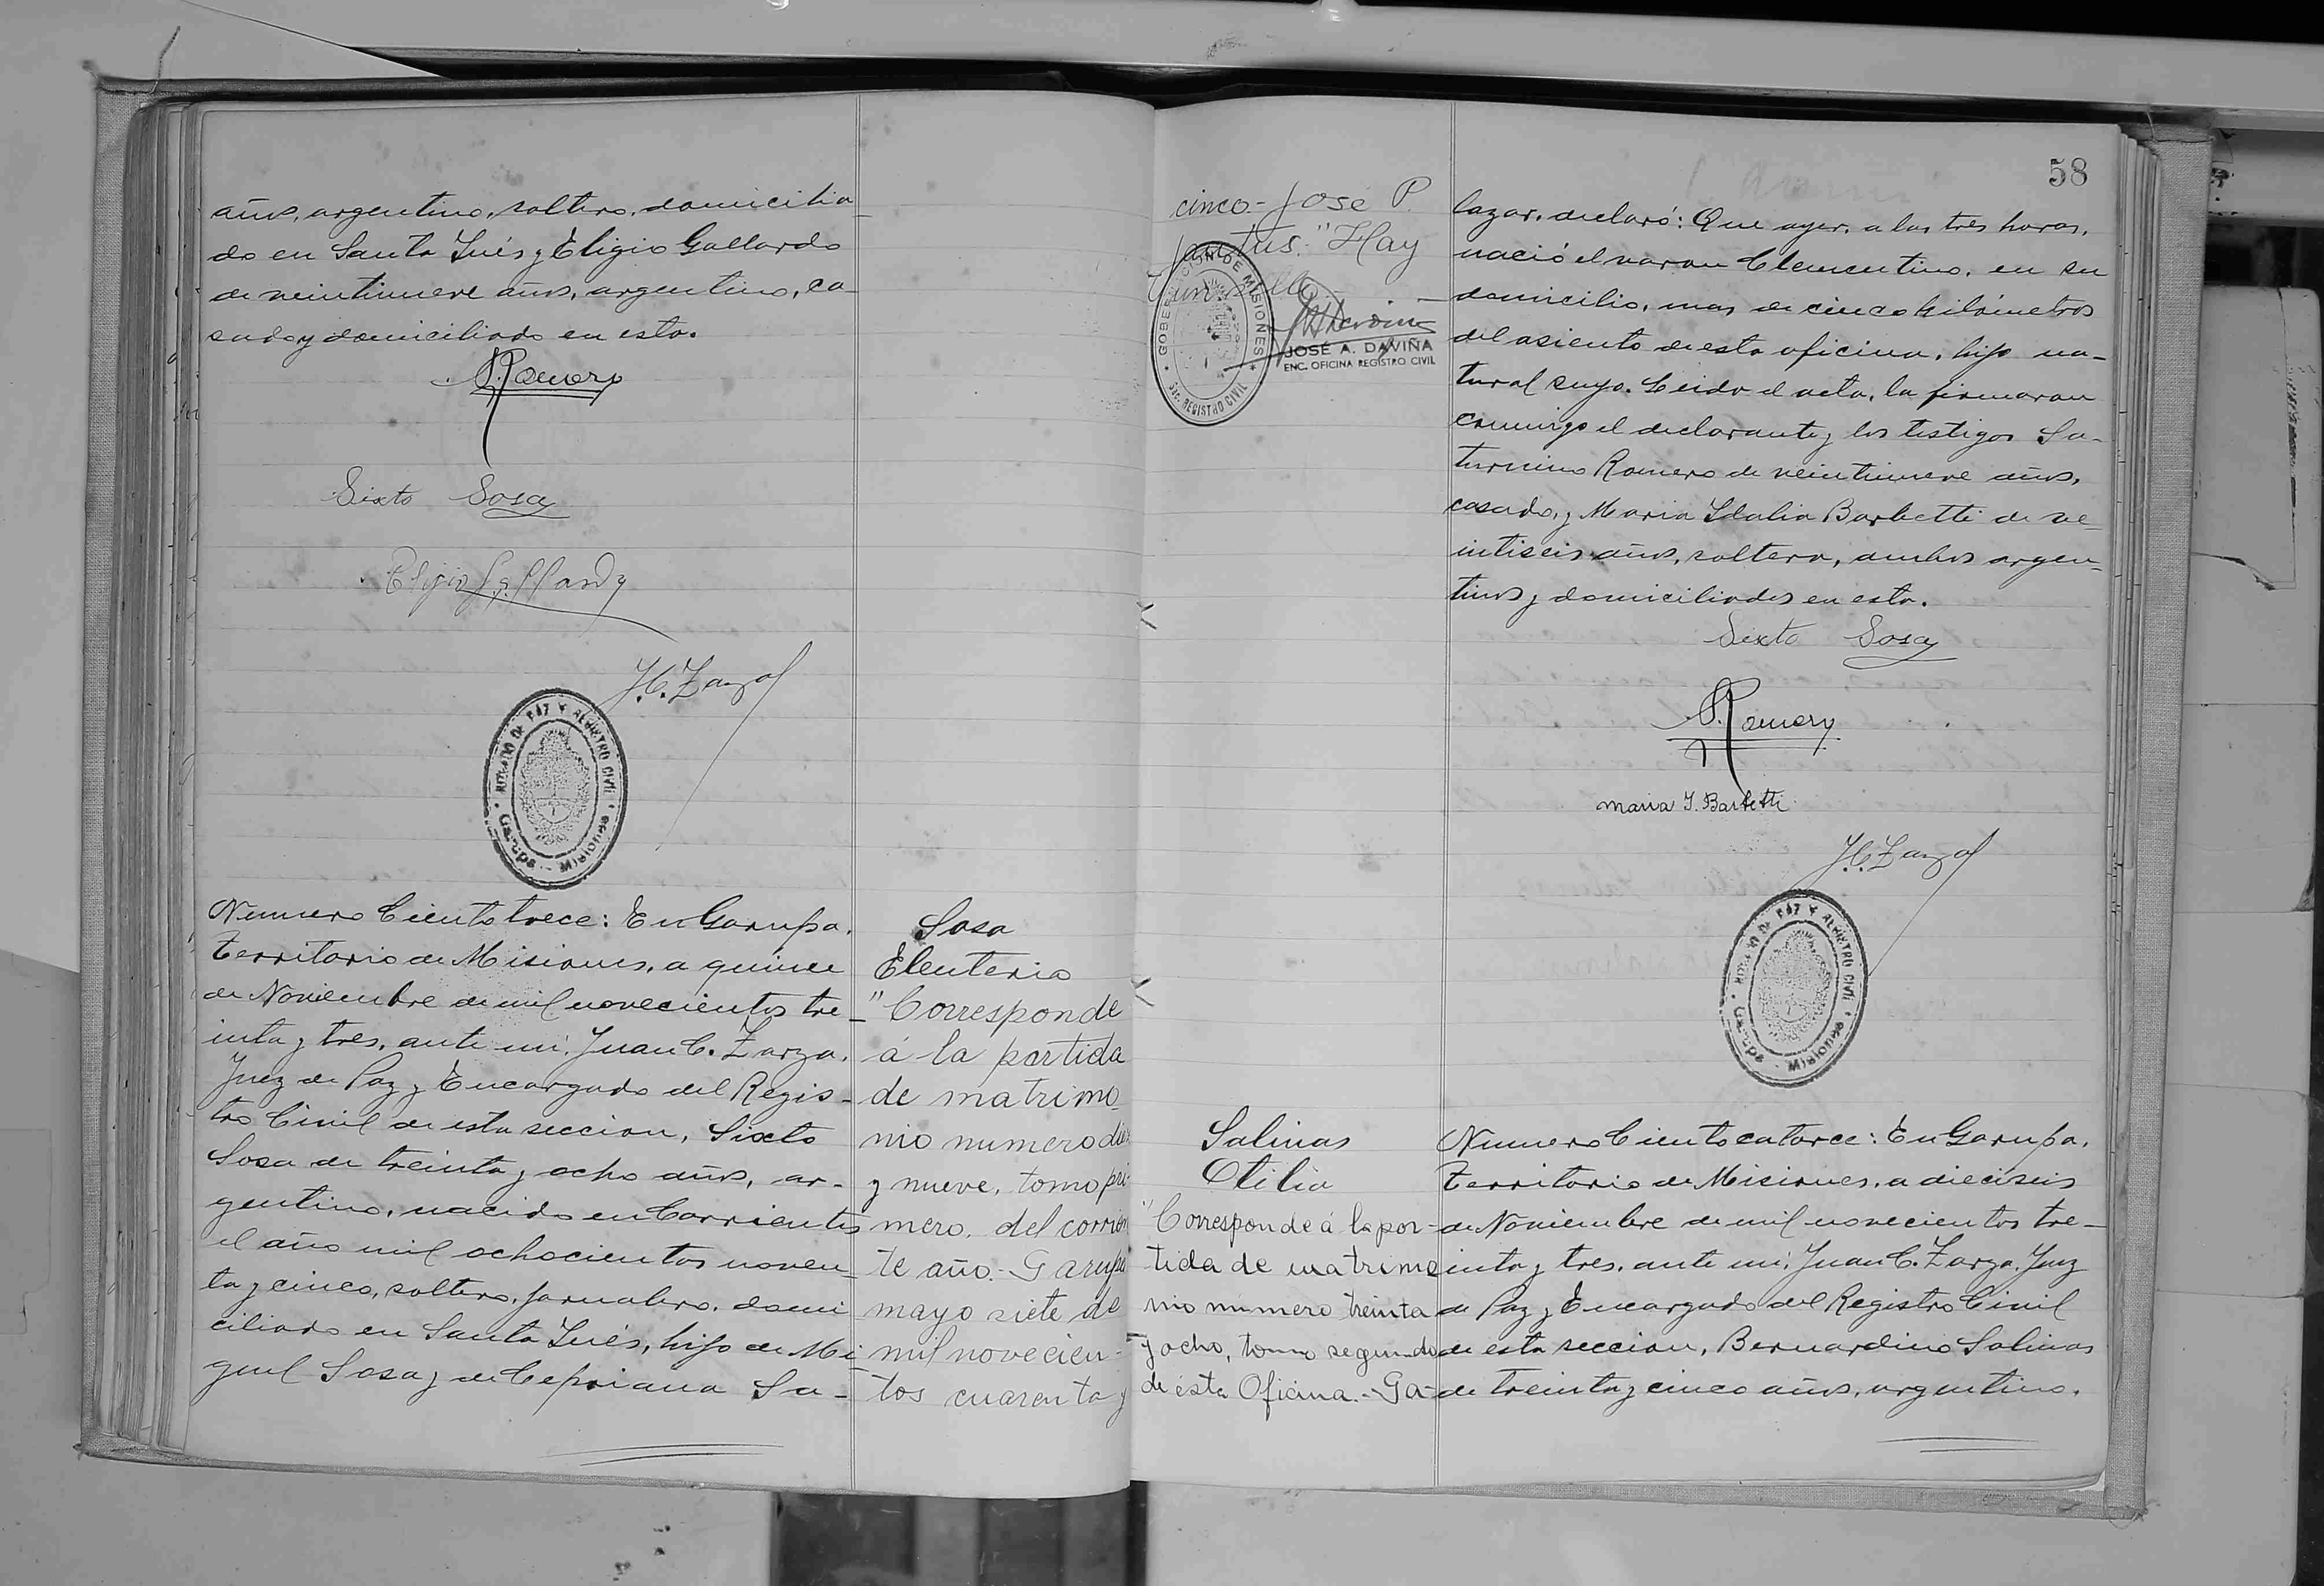 años, argentino, soltero, domicilia-
do en Santa Inés y Eligio Gallardo
de veintinueve años, argentino, ca-
sado y domiciliado en esta.
S. Romero
Sixto Sosa
Eligio Gallardo
J. C. Zarza
JUZGADO DE PAZ Y REGISTRO CIVIL
Garupá - Misiones
Numero Ciento trece: En Garupa.
Territorio de Misiones, a quince
de Noviembre de mil novecientos tre-
inta y tres, ante mi, Juan C. Zarza,
Juez de Paz y Encargado del Regis-
tro Civil de esta seccion, Sixto
Sosa de treinta y ocho años, ar-
gentino, nacido en Corrientes
el año mil ochocientos noven-
ta y cinco, soltero, jornalero, domi-
ciliado en Santa Inés, hijo de Mi-
guel Sosa y de Cepriana Sa-
Sosa
Eleuterio
"Corresponde
á la partida
de matrimo-
nio numero diez
y nueve, tomo pri-
mero, del corrien-
te año.- Garupá
mayo siete de
mil novecien-
tos cuarenta y
cinco.- José P.
"Hay
un sello
GOBERNACION DE MISIONES
Sec. REGISTRO CIVIL
JOSÉ A. DAVIÑA
ENC. OFICINA REGISTRO CIVIL
58
lazar, declaró: Que ayer, a las tres horas,
nació el varon Clementino, en su
domicilio, mas de cinco kilómetros
del asiento de esta oficina, hijo na-
tural suyo. Leida el acta, la firmaron
conmigo el declarante y los testigos Sa-
turnino Romero de veintinueve años,
casado, y Maria Idalia Barbetti de ve-
intiseis años, soltera, ambos argen-
tinos y domiciliados en esta.
Sixto Sosa
S. Romero
Maria I. Barbetti
J. C. Zarza
JUZGADO DE PAZ Y REGISTRO CIVIL
Garupá - Misiones
Salinas
Otilia
"Corresponde á la par-
tida de matrimo-
nio numero treinta
y ocho, tomo segundo
de ésta Oficina.- Ga-
Numero Ciento catorce: En Garupa,
Territorio de Misiones, a dieciseis
de Noviembre de mil novecientos tre-
inta y tres, ante mi, Juan C. Zarza, Juez
de Paz y Encargado del Registro Civil
de esta seccion, Bernardino Salinas
de treinta y cinco años, argentino,